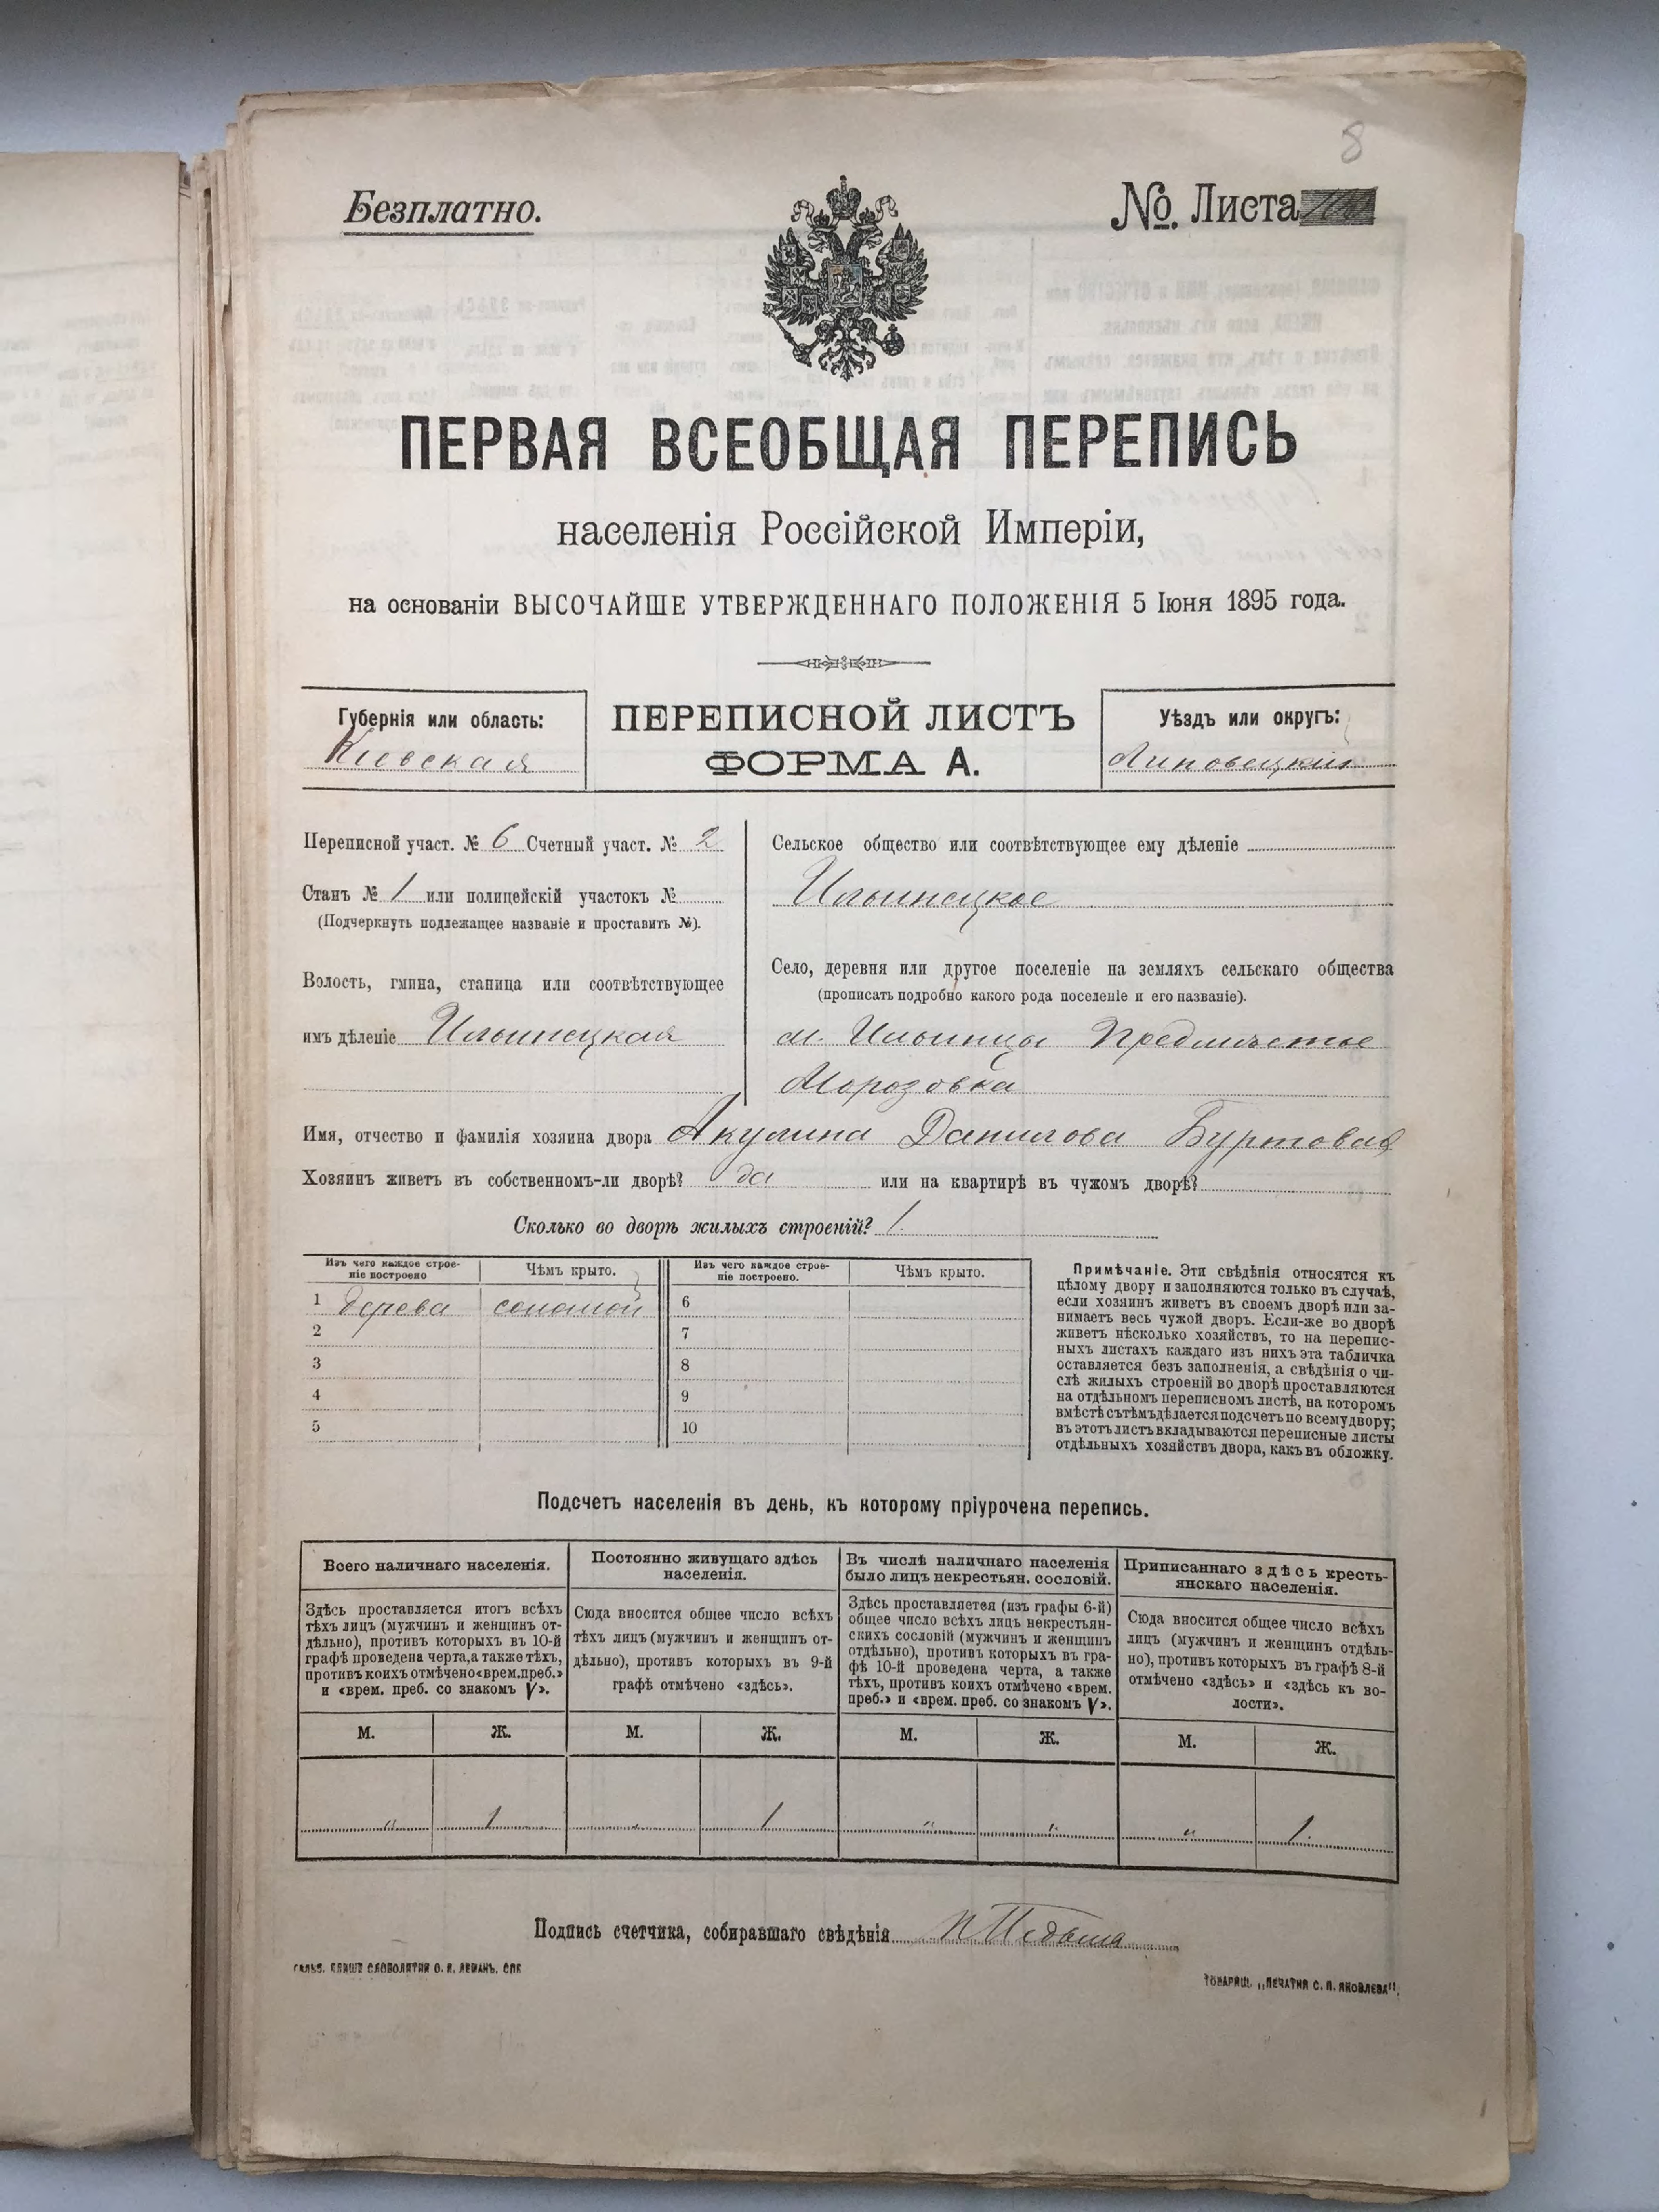 8
Безплатно.
№. Листа
ПЕРВАЯ ВСЕОБЩАЯ ПЕРЕПИСЬ
населенія Россійской Имперіи,
на основаніи ВЫСОЧАЙШЕ УТВЕРЖДЕННАГО ПОЛОЖЕНІЯ 5 Іюня 1895 года.
Губернія или область:
Кіевская
ПЕРЕПИСНОЙ ЛИСТЪ
ФОРМА А.
Уѣздъ или округъ:
Липовецкій
Переписной участ. № 6 Счетный участ. № 2
Станъ № 1 или полицейскій участокъ №
(Подчеркнуть подлежащее названіе и проставить №).
Волость, гмина, станица или соотвѣтствующее
имъ дѣленіе Ильинецкая
Сельское общество или соотвѣтствующее ему дѣленіе
Ильинецкое
Село, деревня или другое поселеніе на земляхъ сельскаго общества
(прописать подробно какого рода поселеніе и его названіе).
м. Ильинцы Предмѣстье
Морозовка
Имя, отчество и фамилія хозяина двора Акулина Данилова Буртовая
Хозяинъ живетъ въ собственномъ-ли дворѣ? да или на квартирѣ въ чужомъ дворѣ?
Сколько во дворѣ жилыхъ строеній? 1.
Изъ чего каждое строе-
ніе построено
Чѣмъ крыто.
1 дерева соломой
2
3
4
5
Изъ чего каждое строе-
ніе построено.
Чѣмъ крыто.
6
7
8
9
10
Примѣчаніе. Эти свѣдѣнія относятся къ
цѣлому двору и заполняются только въ случаѣ,
если хозяинъ живетъ въ своемъ дворѣ или за-
нимаетъ весь чужой дворъ. Если-же во дворѣ
живетъ нѣсколько хозяйствъ, то на перепис-
ныхъ листахъ каждаго изъ нихъ эта табличка
оставляется безъ заполненія, а свѣдѣнія о чи-
слѣ жилыхъ строеній во дворѣ проставляются
на отдѣльномъ переписномъ листѣ, на которомъ
вмѣстѣ съ тѣмъ дѣлается подсчетъ по всему двору;
въ этотъ листъ вкладываются переписные листы
отдѣльныхъ хозяйствъ двора, какъ въ обложку.
Подсчетъ населенія въ день, къ которому пріурочена перепись.
Всего наличнаго населенія.
Здѣсь проставляется итогъ всѣхъ
тѣхъ лицъ (мужчинъ и женщинъ от-
дѣльно), противъ которыхъ въ 10-й
графѣ проведена черта, а также тѣхъ,
противъ коихъ отмѣчено «врем. преб.»
и «врем. преб. со знакомъ V».
М. Ж.
" 1
Постоянно живущаго здѣсь
населенія.
Сюда вносится общее число всѣхъ
тѣхъ лицъ (мужчинъ и женщинъ от-
дѣльно), противъ которыхъ въ 9-й
графѣ отмѣчено «здѣсь».
М. Ж.
" 1
Въ числѣ наличнаго населенія
было лицъ некрестьян. сословій.
Здѣсь проставляется (изъ графы 6-й)
общее число всѣхъ лицъ некрестьян-
скихъ сословій (мужчинъ и женщинъ
отдѣльно), противъ которыхъ въ гра-
фѣ 10-й проведена черта, а также
тѣхъ, противъ коихъ отмѣчено «врем.
преб.» и «врем. преб. со знакомъ V».
М. Ж.
" "
Приписаннаго здѣсь кресть-
янскаго населенія.
Сюда вносится общее число всѣхъ
лицъ (мужчинъ и женщинъ отдѣль-
но), противъ которыхъ въ графѣ 8-й
отмѣчено «здѣсь» и «здѣсь къ во-
лости».
М. Ж.
" 1.
Подпись счетчика, собиравшаго свѣдѣнія
СЛОВОЛИТНИ О. И. ЛЕМАНЪ, СПБ
ТОВАРИЩ. „ПЕЧАТНЯ С. П. ЯКОВЛЕВА".